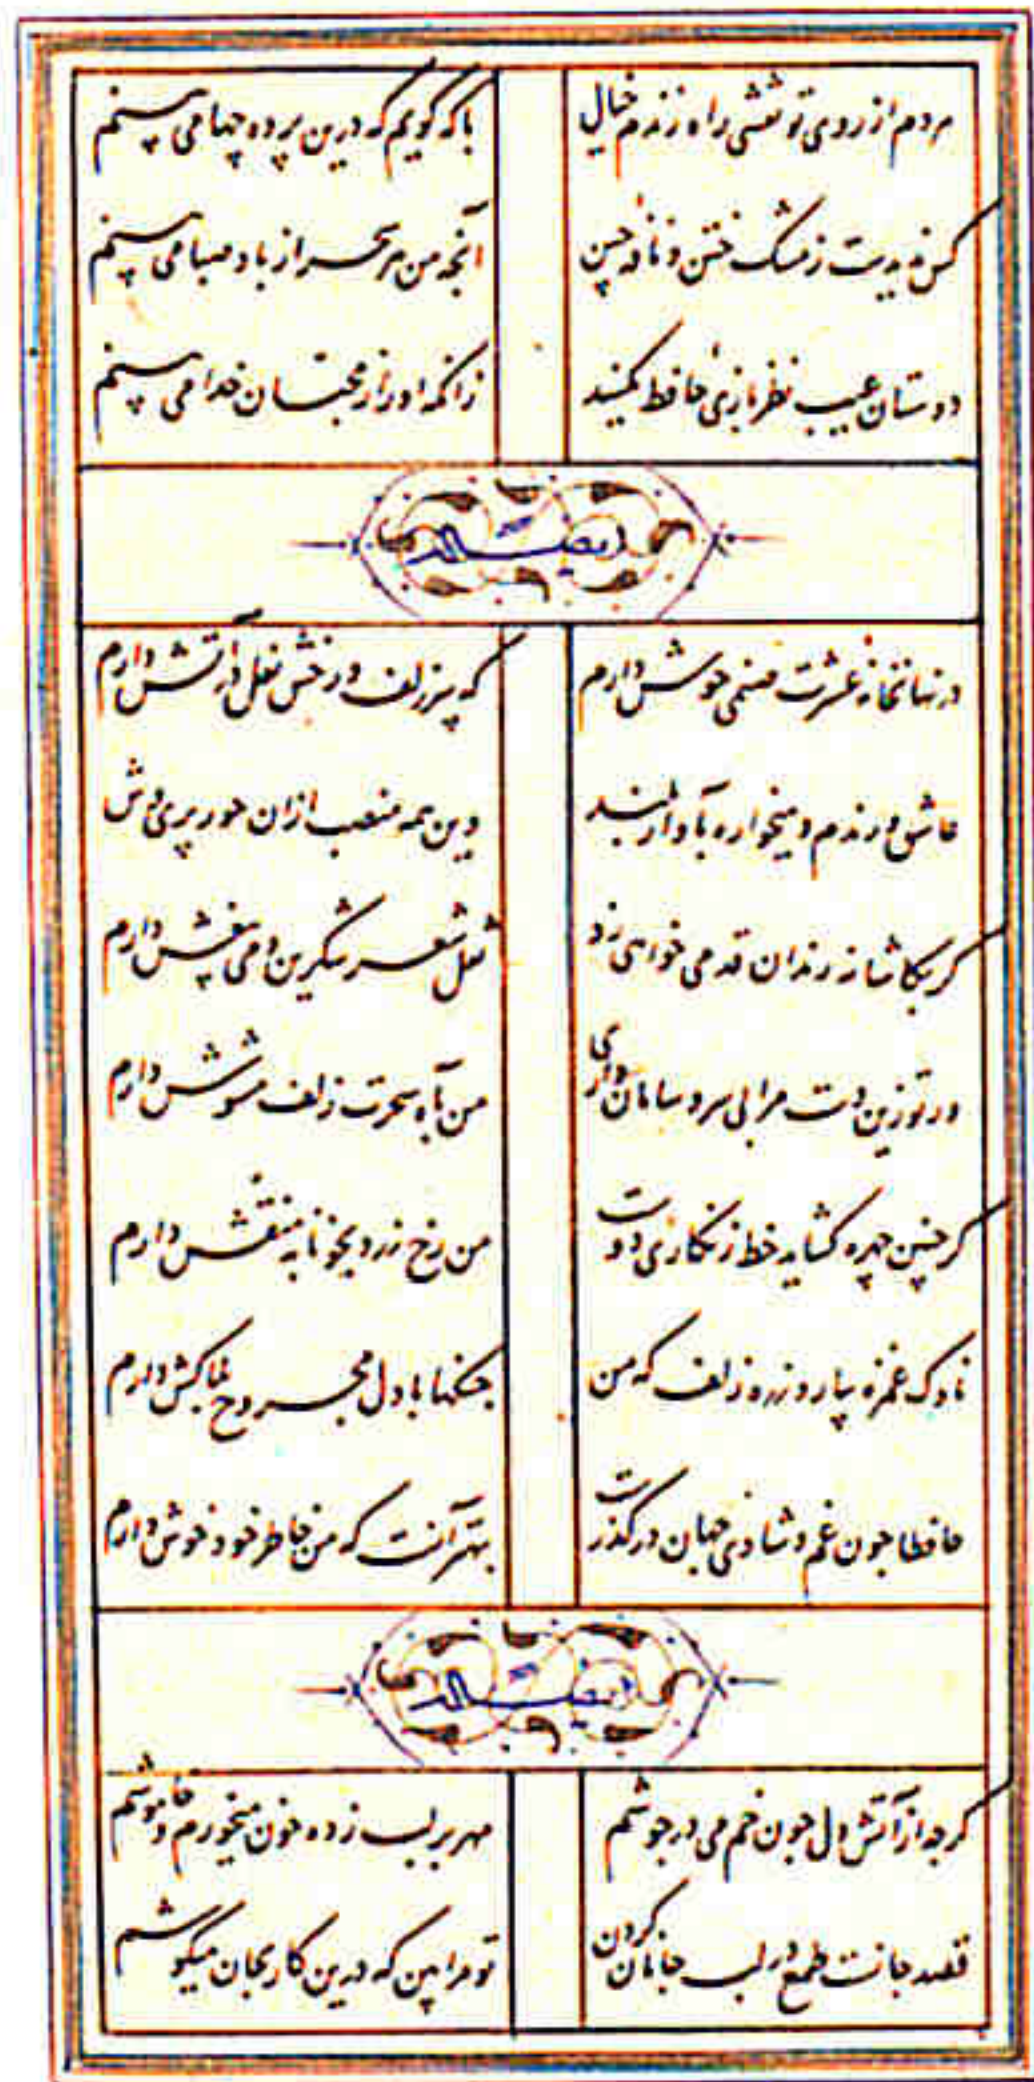 مردم از روی تو نقشی راه زندم خیال با که گویم که درین پرده چها می بینم
کس ندیدست ز مشک ختن و نافه چین آنچه من هر سحر از باد صبا می بینم
دوستان عیب نظربازی حافظ مکنید زانکه او را ز محبان خدا می بینم
در نهانخانه عشرت صنمی خوش دارم که سر زلف و رخش نعل در آتش دارم
عاشق و رندم و میخواره بآواز بلند وین همه منصب ازان حور پری وش دارم
گر بکاشانه رندان قدمی خواهی زد نقل شعر شکرین و می بیغش دارم
ور تو زین دست مرا بی سر و سامان داری من بآه سحرت زلف مشوش دارم
گر چنین چهره گشاید خط زنگاری دوست من رخ زرد بخونابه منقش دارم
ناوک غمزه بیار و زره زلف که من جنگها با دل مجروح بلاکش دارم
حافظا چون غم و شادی جهان در گذرست بهتر آنست که من خاطر خود خوش دارم
گرچه از آتش دل چون خم می در جوشم مهر بر لب زده خون میخورم و خاموشم
قصد جانست طمع در لب جانان کردن تو مرا بین که درین کار بجان میکوشم